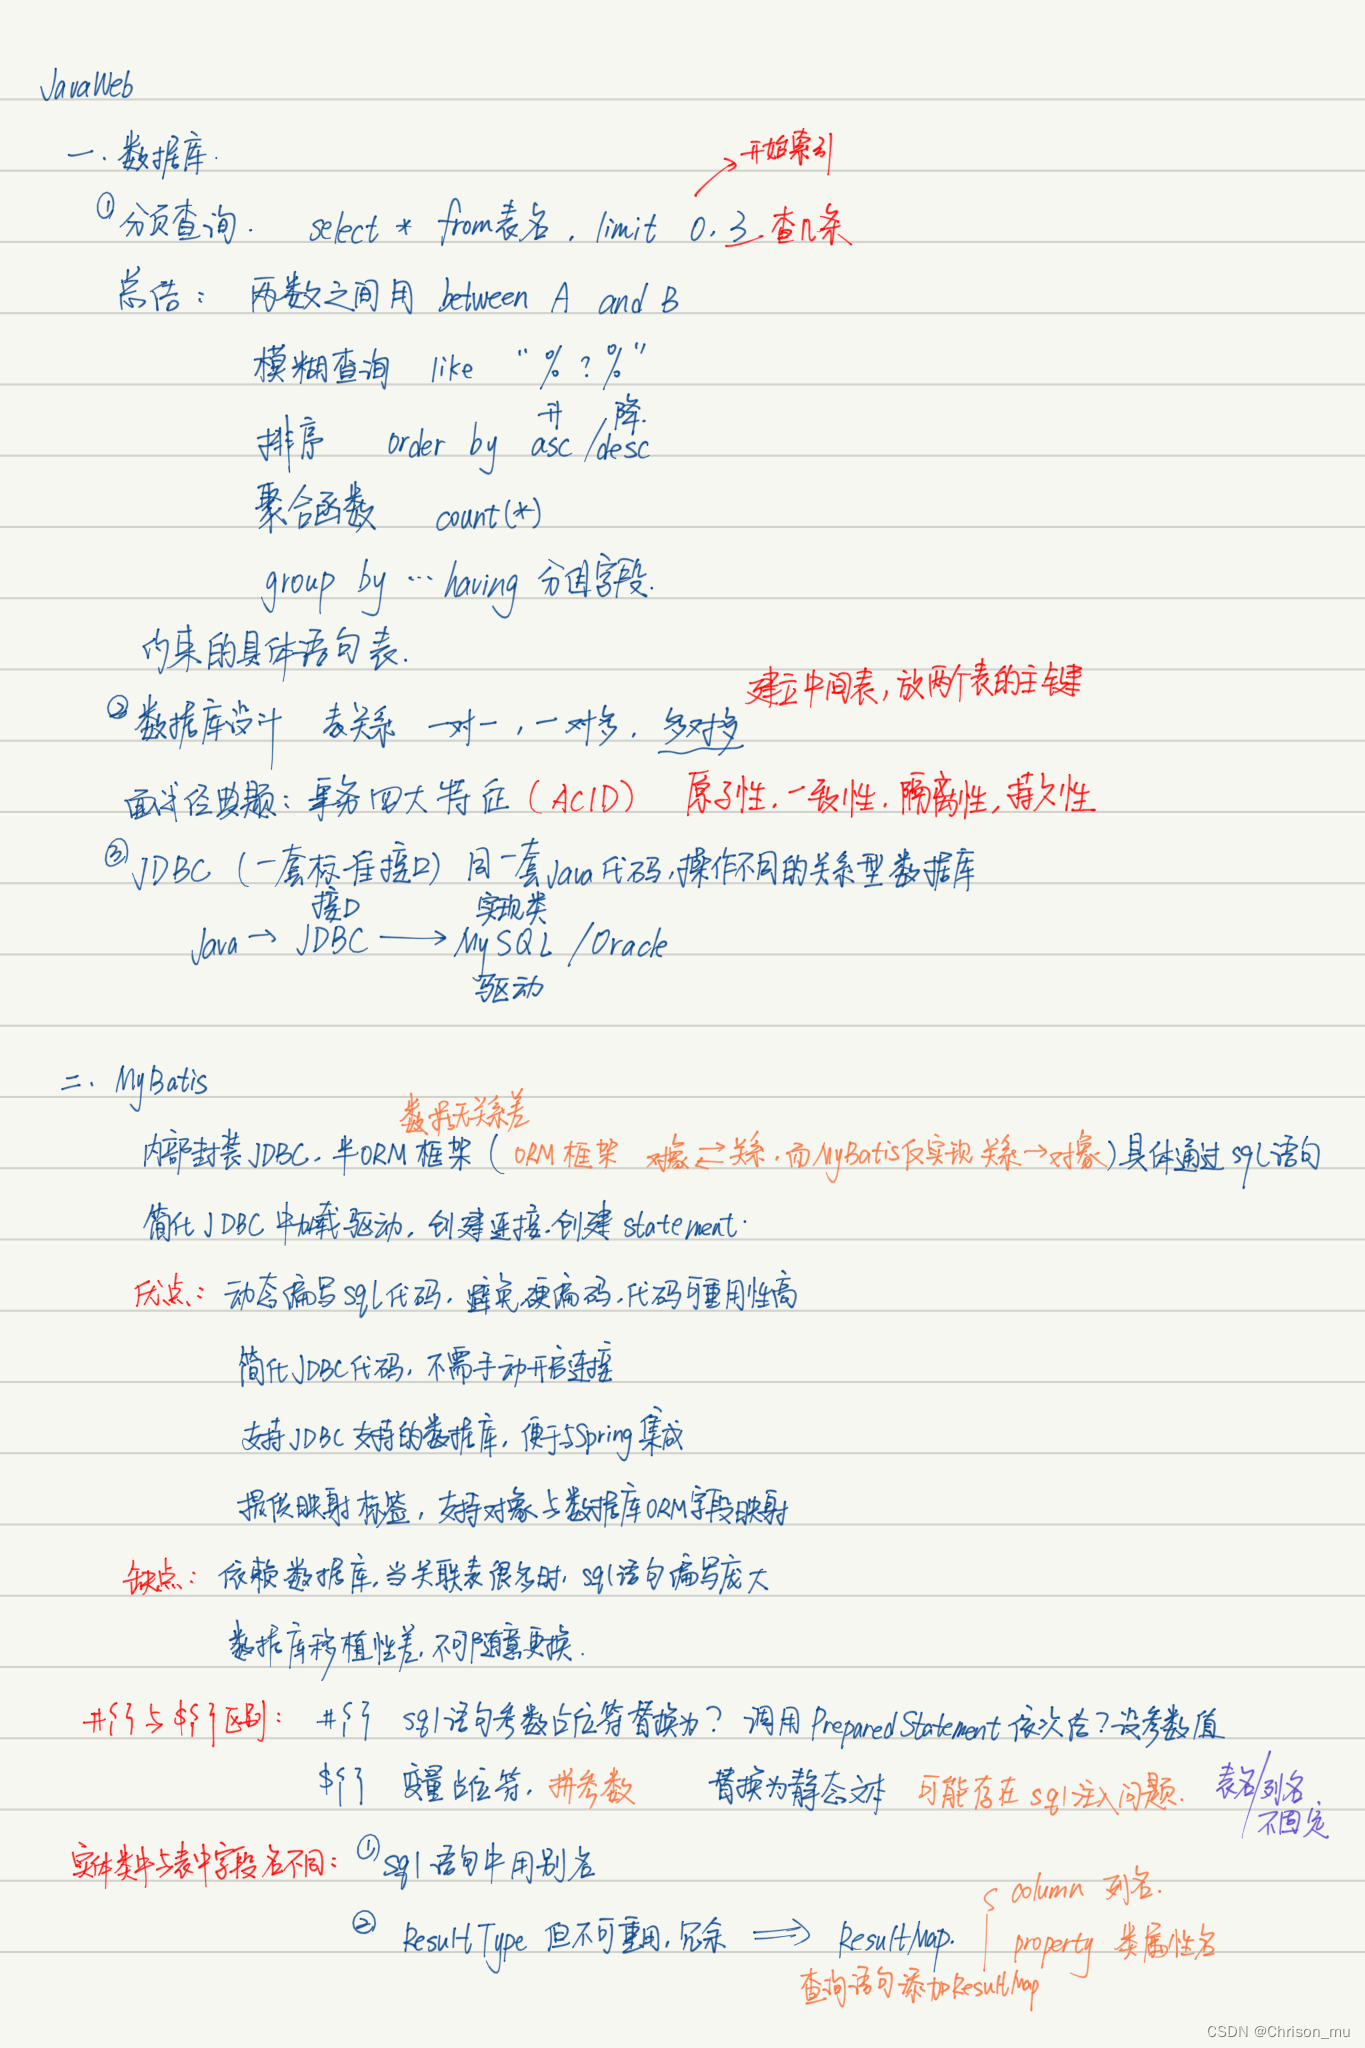 JavaWeb
一. 数据库.
开始索引
① 分页查询. select * from 表名 . limit 0 . 3 查几条
总结: 两数之间用 between A and B
模糊查询 like "%?%"
升 降.
排序 order by asc /desc
聚合函数 count(*)
group by … having 分组字段.
的具体语句表.
建立中间表, 放两个表的主键
② 数据库设计 表关系 一对一, 一对多, 多对多
面试经典题: 事务四大特征 (ACID) 原子性. 一致性. 隔离性, 持久性
③ JDBC (一套标准接口) 同一套Java代码, 操作不同的关系型数据库
接口 实现类
Java → JDBC → MySQL /Oracle
驱动
二. MyBatis
数据关系差
内部封装JDBC. 半ORM框架 ( ORM框架 对象⇄关系. 而MyBatis仅实现 关系→对象) 具体通过sql语句
简化JDBC中加载驱动. 创建连接. 创建 statement.
优点: 动态编写sql代码. 避免硬编码. 代码可重用性高
简化JDBC代码, 不需手动开启连接
支持JDBC支持的数据库, 便于与Spring集成
提供映射标签, 支持对象与数据库ORM字段映射
缺点: 依赖数据库. 当关联表很多时. sql语句编写庞大
数据库移植性差. 不可随意更换.
#{}与${}区别: #{} sql语句参数占位符替换为? 调用PreparedStatement 依次给?设参数值
${} 变量占位符, 拼参数 替换为静态文本 可能存在sql注入问题. 表名/列名
不固定
实体类中与表中字段名不同: ① sql语句中用别名
{ column 列名.
② ResultType 但不可重用, 冗余 ⟹ ResultMap. property 类属性名
查询语句添加ResultMap
CSDN @Chrison_mu